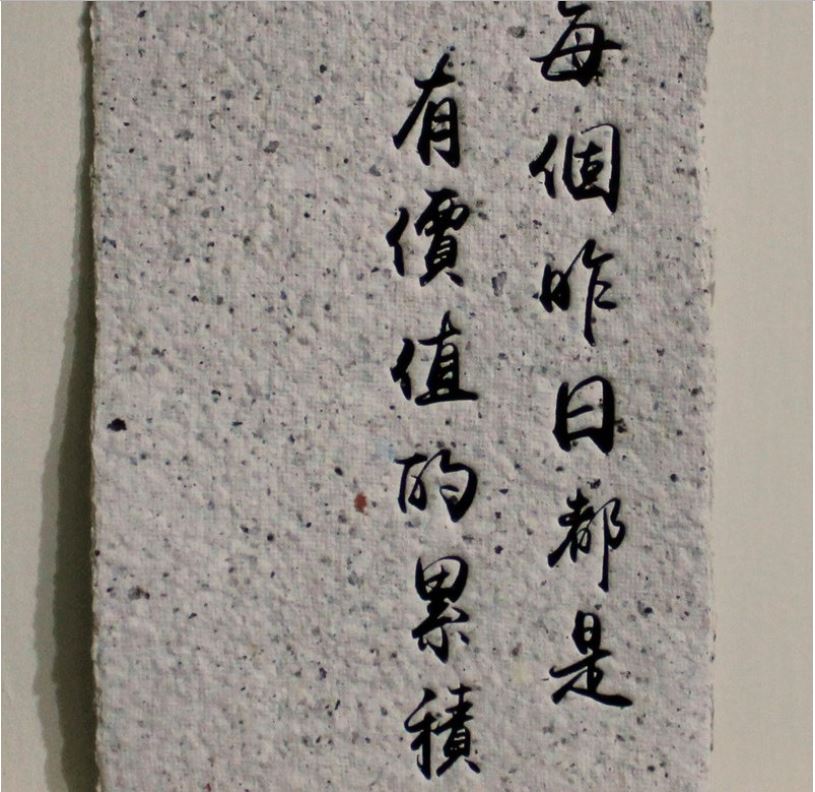 每個昨日都是
有價值的累積